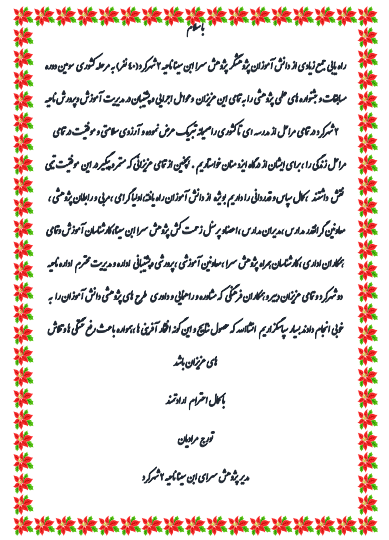 باسلام
راه یابی جمع زیادی از دانش آموزان پژوهشگر پژوهش سرا ابن سینا ناحیه ۲ شهرکرد (۴۰ نفر) به مرحله کشوری سومین دوره
مسابقات و جشنواره های علمی پژوهشی را به تمامی این عزیزان و عوامل اجرایی و پشتیبان در مدیریت آموزش و پرورش ناحیه
۲ شهرکرد در تمامی مراحل از مدرسه ای تا کشوری را صمیمانه تبریک عرض نموده و آرزوی سلامتی و موفقیت در تمامی
مراحل زندگی را ، برای ایشان از درگاه ایزد منان خواستاریم . همچنین از تمامی عزیزانی که مستمر و پیگیر در این موفقیت تیمی
نقش داشتند ، کمال سپاس و قدردانی را داریم بویژه از دانش آموزان راه یافته، اولیا گرامی ، مربی و رابطان پژوهشی ،
معاونین گرانقدر مدارس ، مدیران مدارس ، اعضا و پرسنل زحمت کش پژوهش سرا ابن سینا، کارشناسان آموزش و تمامی
همکاران اداری ، کارشناسان همراه پژوهش سرا ، معاونین آموزشی ، پرورشی و پشتیبانی اداره و مدیریت محترم اداره ناحیه
دو شهرکرد و تمامی عزیزان دبیر و همکاران فرهنگی که مشاوره و راهنمایی و داوری طرح های پژوهشی دانش آموزان را به
خوبی انجام دادند بسیار سپاسگزاریم انشاالله که حصول نتایج و این گونه افتخار آفرینی ها ، همواره باعث رفع خستگی ها و تلاش
های عزیزان باشد
با کمال احترام ارادتمند
تورج مرادیان
مدیر پژوهش سرای ابن سینا ناحیه ۲ شهرکرد